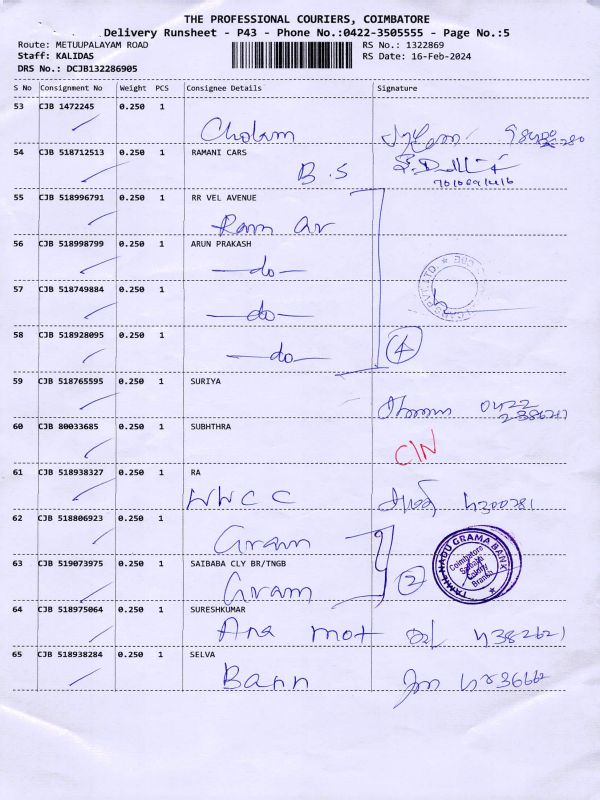 THE PROFESSIONAL COURIERS, COIMBATORE
Delivery Runsheet - P43 - Phone No.:0422-3505555 - Page No.:5
Route: METUUPALAYAM ROAD RS No.: 1322869
Staff: KALIDAS RS Date: 16-Feb-2024
DRS No.: DCJB132286905
S No Consignment No Weight PCS Consignee Details Signature
53 CJB 1472245 0.250 1
Cholam
54 CJB 518712513 0.250 1 RAMANI CARS
B.S
55 CJB 518996791 0.250 1 RR VEL AVENUE
Ram
56 CJB 518998799 0.250 1 ARUN PRAKASH
—do—
57 CJB 518749884 0.250 1
—do—
58 CJB 518928095 0.250 1
—do— 4
59 CJB 518765595 0.250 1 SURIYA
0422
2386217
60 CJB 80033685 0.250 1 SUBHTHRA
C/N
61 CJB 518938327 0.250 1 RA
WWCC
62 CJB 518806923 0.250 1
Gram
63 CJB 519073975 0.250 1 SAIBABA CLY BR/TNGB
Gram 2
TAMIL NADU GRAMA BANK
Coimbatore
Saibaba
Colony
Branch
64 CJB 518975064 0.250 1 SURESHKUMAR
Ana mot
65 CJB 518938284 0.250 1 SELVA
Bann